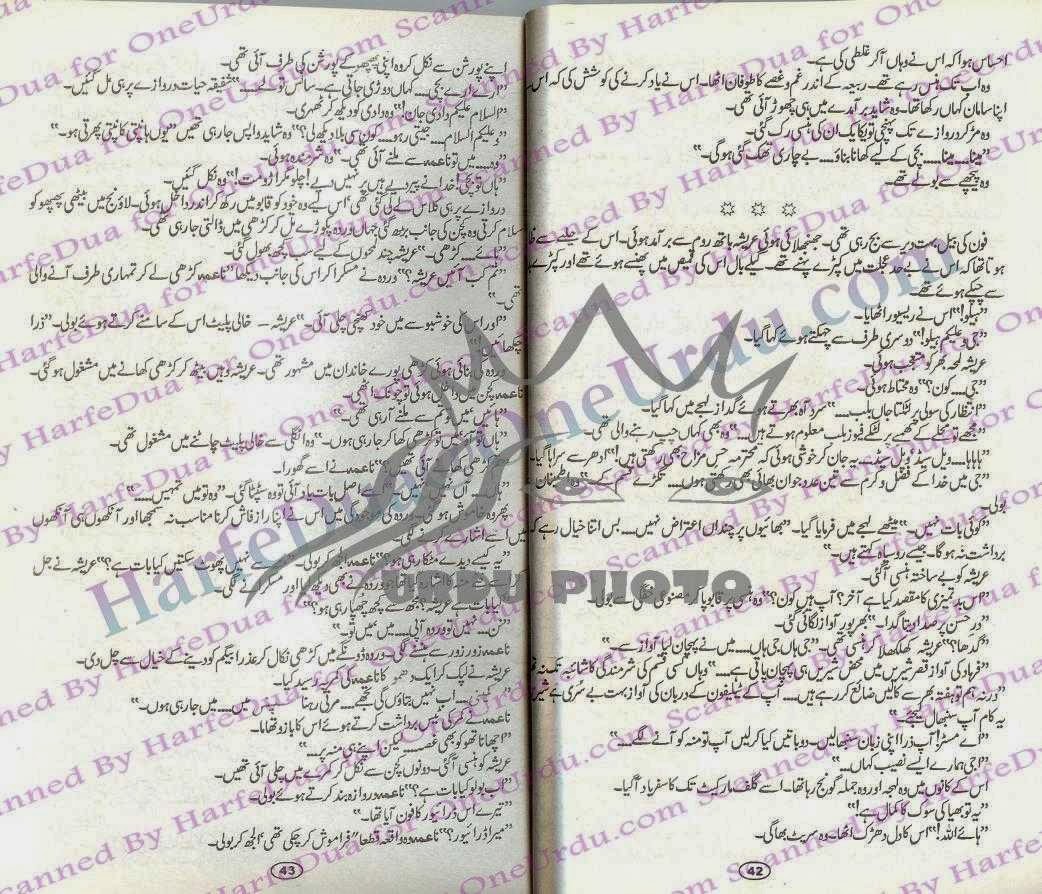 احساس ہوا کہ اس نے وہاں آکر غلطی کی ہے۔
وہ اب تک ہنس رہے تھے۔ ربیعہ کے اندر غم و غصے کا طوفان اٹھا۔ اس نے یاد کرنے کی کوشش کی کہ اس
اپنا سامان کہاں رکھا تھا۔ وہ شاید برآمدے میں ہی چھوڑ آئی تھی۔
وہ مڑ کر دروازے تک پہنچی تو یکایک ان کی ہنسی رک گئی۔
"مینا.... مینا.... بچی کے لیے کھانا بناؤ.... بے چاری تھک گئی ہوگی۔"
وہ پیچھے سے بولے تھے۔
فون کی بیل بہت دیر سے بج رہی تھی۔ جھنجھلائی ہوئی عریشہ باتھ روم سے برآمد ہوئی۔ اس کے حلیے سے
ہوتا تھا کہ اس نے بے حد عجلت میں کپڑے پہنے تھے۔ گیلے بال اس کی قمیص میں پھنسے ہوئے تھے اور کپڑے
سے چپکے ہوئے تھے۔
"ہیلو!" اس نے ریسیور اٹھایا۔
"جی وعلیکم ہیلو!" دوسری طرف سے چہکتے ہوئے کہا گیا۔
عریشہ لمحہ بھر کو متعجب ہوئی۔
"جی.... کون؟" وہ محتاط ہوئی۔
"انتظار کی سولی پر لٹکتا جاں بلب...." سرد آہ بھرتے ہوئے گداز لہجے میں کہا گیا۔
"مجھے تو بجلی کے کھمبے پر لٹکے فیوز بلب معلوم ہوتے ہیں...." وہ بھی کہاں چپ رہنے والی تھی۔
"ہاہاہا.... ویل سیڈ، ویل سیڈ۔ یہ جان کر خوشی ہوئی کہ محترمہ حس مزاح بھی رکھتی ہیں!" ادھر سے سراہا گیا۔
"جی میں خدا کے فضل و کرم سے تین عدد جوان بھائی بھی رکھتی ہوں.... تگڑے قسم کے" وہ اطمینان
بولی۔
"کوئی بات نہیں۔" میٹھے لہجے میں فرمایا گیا۔ "بھائیوں پر چنداں اعتراض نہیں.... بس اتنا خیال رہے کہ
برداشت نہ ہوگا۔ جیسے روسیاہ کہتے ہیں۔"
عریشہ کو بے ساختہ ہنسی آگئی۔
"اس بدتمیزی کا مقصد کیا ہے آخر؟ آپ ہیں کون؟" وہ ہنسی پر قابو پا کر مصنوعی خفگی سے بولی۔
"در حسن پر صدا دیتا گدا۔" بھرپور آواز لگائی گئی۔
"گدھا؟" عریشہ کھلکھلا کر ہنسی تھی۔ "جی ہاں جی ہاں.... میں نے پہچان لیا آواز سے۔"
"فرہاد کی آواز قصر شیریں میں محض شیریں ہی پہچان پاتی ہے...." وہاں کسی قسم کی شرمندگی کا شائبہ تک نہ
"ورنہ ہم تو ہفتہ بھر سے کالیں ضائع کر رہے ہیں.... آپ کے ٹیلیفون کے دربان کی آواز بہت بے سری ہے
یہ کام آپ سنبھال لیجئے۔"
"اے مسٹر! آپ ذرا اپنی زبان سنبھالیں۔ دو باتیں کیا کرلیں آپ تو منہ کو آنے لگے...."
"اجی ہمارے ایسے نصیب کہاں...."
اس کے کانوں میں وہ لہجہ اور وہ جملہ گونج رہا تھا۔ اسے گلف مارکیٹ تک کا سفر یاد آگیا۔
"یہ تو بھیا کی سوک کا کمال ہے!"
"ہائے اللہ!" اس کا دل دھڑک اٹھا۔ وہ سرپٹ بھاگی۔
42
اپنے پورشن سے نکل کر وہ اپنی پھپھو کے پورشن کی طرف آئی تھی۔
"ارے ارے بچی.... کہاں دوڑی جاتی ہے۔ سانس تو لے...." شفیقہ حیات دروازے پر ہی مل گئیں۔
"السلام علیکم دادی جان!" وہ دادی کو دیکھ کر ٹھہری۔
"وعلیکم السلام.... جیتی رہو.... کون سی بلا دیکھ لی؟" وہ شاید واپس جا رہی تھیں "یوں ہانپتی کانپتی پھرتی ہو۔"
"وہ.... میں تو ناعمہ سے ملنے آئی تھی۔" وہ شرمندہ ہوئی۔
"ہاں تو بچی! خدا نے پیر دیے ہیں پر نہیں دیے! چلو مگر اڑو مت!" وہ نکل گئیں۔
دروازے پر ہی کلاس لے لی گئی تھی' اس لیے وہ خود کو قابو میں رکھ کر اندر داخل ہوئی۔ لاؤنج میں بیٹھی پھپھو کو
سلام کرتی وہ کچن کی جانب بڑھ گئی جہاں وردہ پکوڑے تل کر کڑھی میں ڈالتی جا رہی تھی۔
"ہائے.... کڑھی۔" عریشہ چند لمحوں کے لیے سب کچھ بھول گئی۔
"تم کب آئیں عریشہ؟" وردہ نے مسکرا کر اس کی جانب دیکھا "ناعمہ کڑھی لے کر تمہاری طرف آنے والی
تھی۔"
"اور اس کی خوشبو سے میں خود کھنچی چلی آئی۔" عریشہ خالی پلیٹ اس کے سامنے کرتے ہوئے بولی۔ "ذرا
چکھائیں!"
وردہ کی بنائی ہوئی کڑھی پورے خاندان میں مشہور تھی۔ عریشہ وہیں بیٹھ کر کڑھی کھانے میں مشغول ہوگئی۔
ناعمہ کچن میں داخل ہوئی تو چونک اٹھی۔
"ہائیں میں تو تم سے ملنے آ رہی تھی۔"
"ہاں تو آؤ نہیں تو کڑھی کھا کر جا رہی ہوں۔" وہ انگلی سے خالی پلیٹ چاٹنے میں مشغول تھی۔
کڑھی کھانے آئی تھیں؟" ناعمہ نے اسے گھورا۔
"ہاں.... آں نہیں نہیں۔" اسے اصل بات یاد آئی تو وہ سٹپٹا گئی۔ "وہ تو میں تمہیں...."
پھر وہ خاموش ہو گئی۔ وردہ کی موجودگی میں اس نے اپنا راز فاش کرنا مناسب نہ سمجھا اور آنکھوں ہی آنکھوں
میں اسے اشارے کرنے لگی۔
"یہ کیسے دیدے مٹکا رہی ہو؟" ناعمہ الجھ کر بولی۔ "منہ سے نہیں پھوٹ سکتیں کیا بات ہے؟" عریشہ نے جل
"کیا بات ہے عریشہ؟ مجھ سے کچھ چھپا رہی ہو؟"
"نن.... نہیں تو وردہ آپی.... میں نہیں تو۔"
ناعمہ زور زور سے ہنسنے لگی۔ وردہ ڈونگے میں کڑھی نکال کر عذرا بیگم کو دینے کے خیال سے چل دی۔
عریشہ نے لپک کر ایک دھموکا ناعمہ کی کمر پر رسید کیا۔
"کمینی.... اب نہیں بتاؤں گی تجھے.... مرتی رہنا سسپنس میں.... میں جا رہی ہوں۔"
ناعمہ نے کمر کی ٹیس برداشت کرتے ہوئے اس کا بازو تھاما۔
"اچھا ناتھو کو بھی غصہ.... لیکن اپنے ہی منہ پر...."
عریشہ کو ہنسی آگئی۔ دونوں کچن سے نکل کر کمرے میں چلی آئی تھیں۔
"اب بولو کیا بات ہے؟" ناعمہ دروازہ بند کرتے ہوئے بولی۔
"تیرے اس ڈرائیور کا فون آیا تھا۔"
"میرا ڈرائیور؟" ناعمہ وہ واقعہ قطعاً" فراموش کر چکی تھی' الجھ کر بولی۔
43
HarfeDua for OneUrdu.com
URDU PHOTO
Scanned By HarfeDua for OneUrdu.com